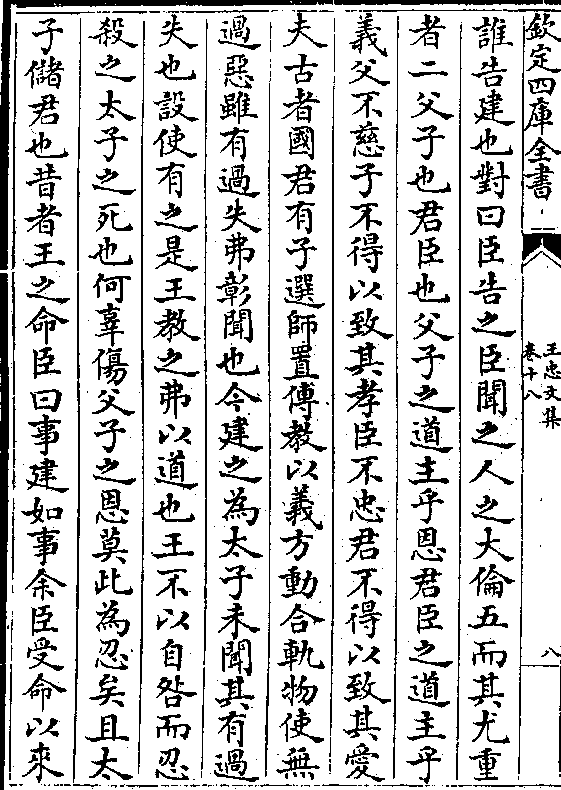 欽定四庫全書
王忠文集
卷十八
八
誰告建也對曰臣告之臣聞之人之大倫五而其尤重
者二父子也君臣也父子之道主乎恩君臣之道主乎
義父不慈子不得以致其孝臣不忠君不得以致其愛
夫古者國君有子選師置傅教以義方動合軌物使無
過惡雖有過失弗彰聞也今建之為太子未聞其有過
失也設使有之是王教之弗以道也王不以自咎而忍
殺之太子之死也何辜傷父子之恩莫此為忍矣且太
子儲君也昔者王之命臣曰事建如事余臣受命以來